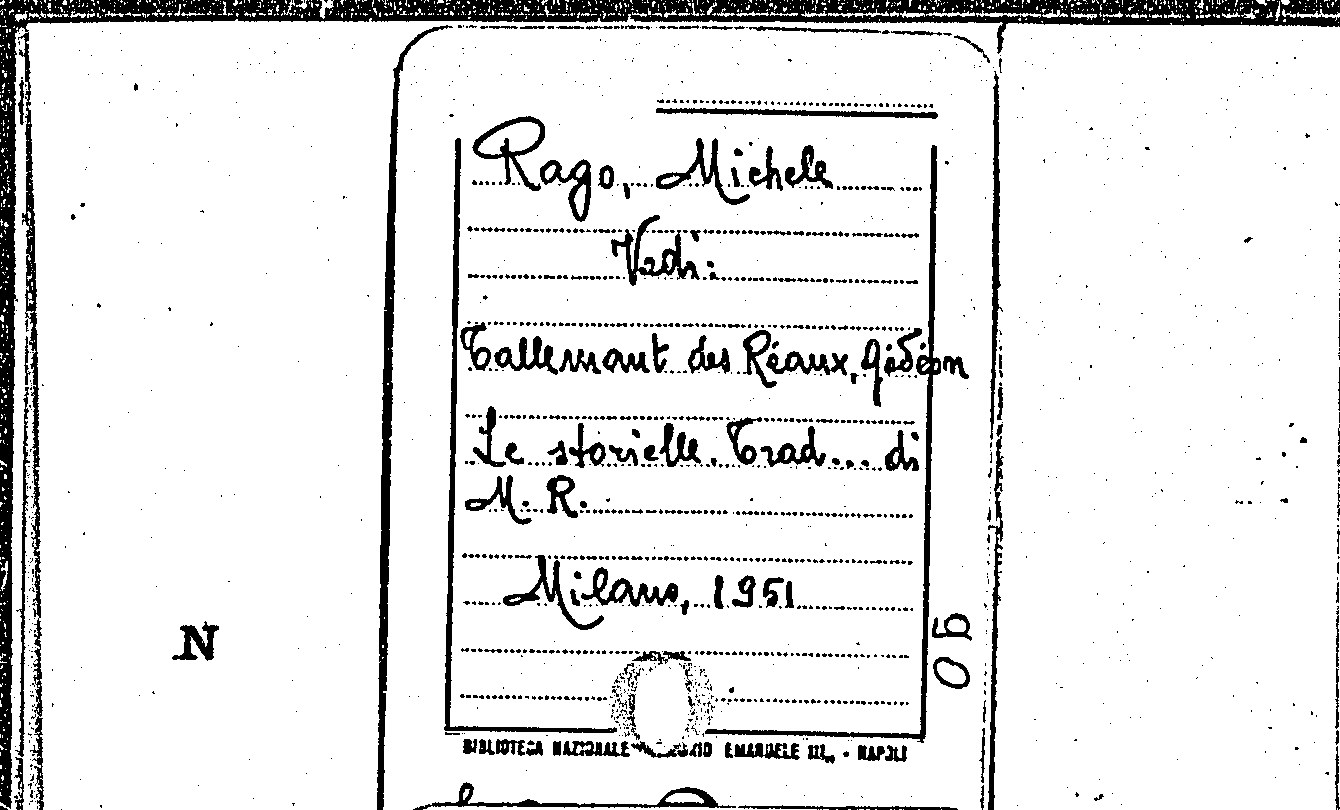 Rago, Michele
Vedi:
Tallemant des Réaux, Gédéon
Le storielle. Trad... di
M. R.
Milano, 1951
N
BIBLIOTECA NAZIONALE EMANUELE III - NAPOLI